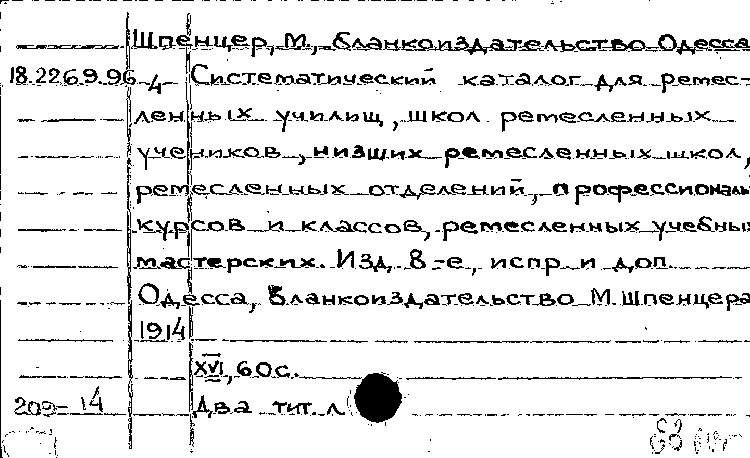 Шпенцер, М., бланкоиздательство Одесса
18.226.9.96 4 Систематический каталог для ремес-
ленных училищ, школ ремесленных
учеников, низших ремесленных школ,
ремесленных отделений, профессиональ
курсов и классов, ремесленных учебны
мастерских. Изд. 8-е, испр и доп.
Одесса, Бланкоиздательство М. Шпенцера
1914
XVI, 60с.
209-14 Два тит. л